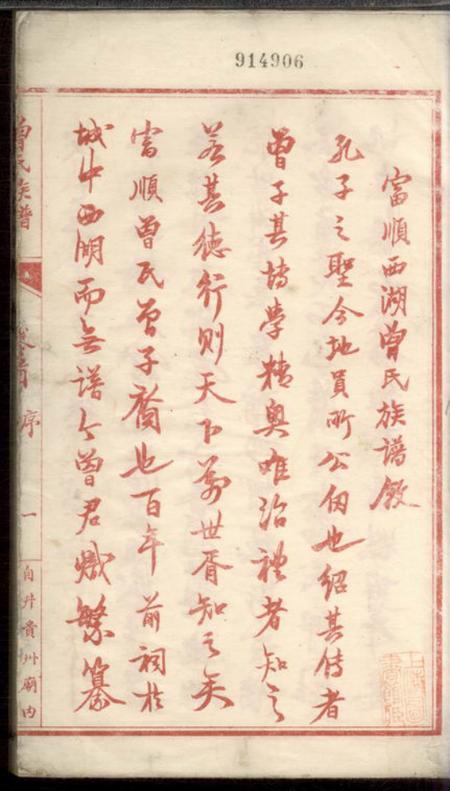 914906
富順西湖曾氏族譜敘
孔子之聖今地員所公仞也紹其传者
曾子其博學精奧唯治禮者知之
若其德行則天下萬世胥知之矣
富順曾氏曾子裔也百年前祠於
城中西湖而無譜今曾君熾繁纂
曾氏族譜
卷首 序
一
自井貴州廟內